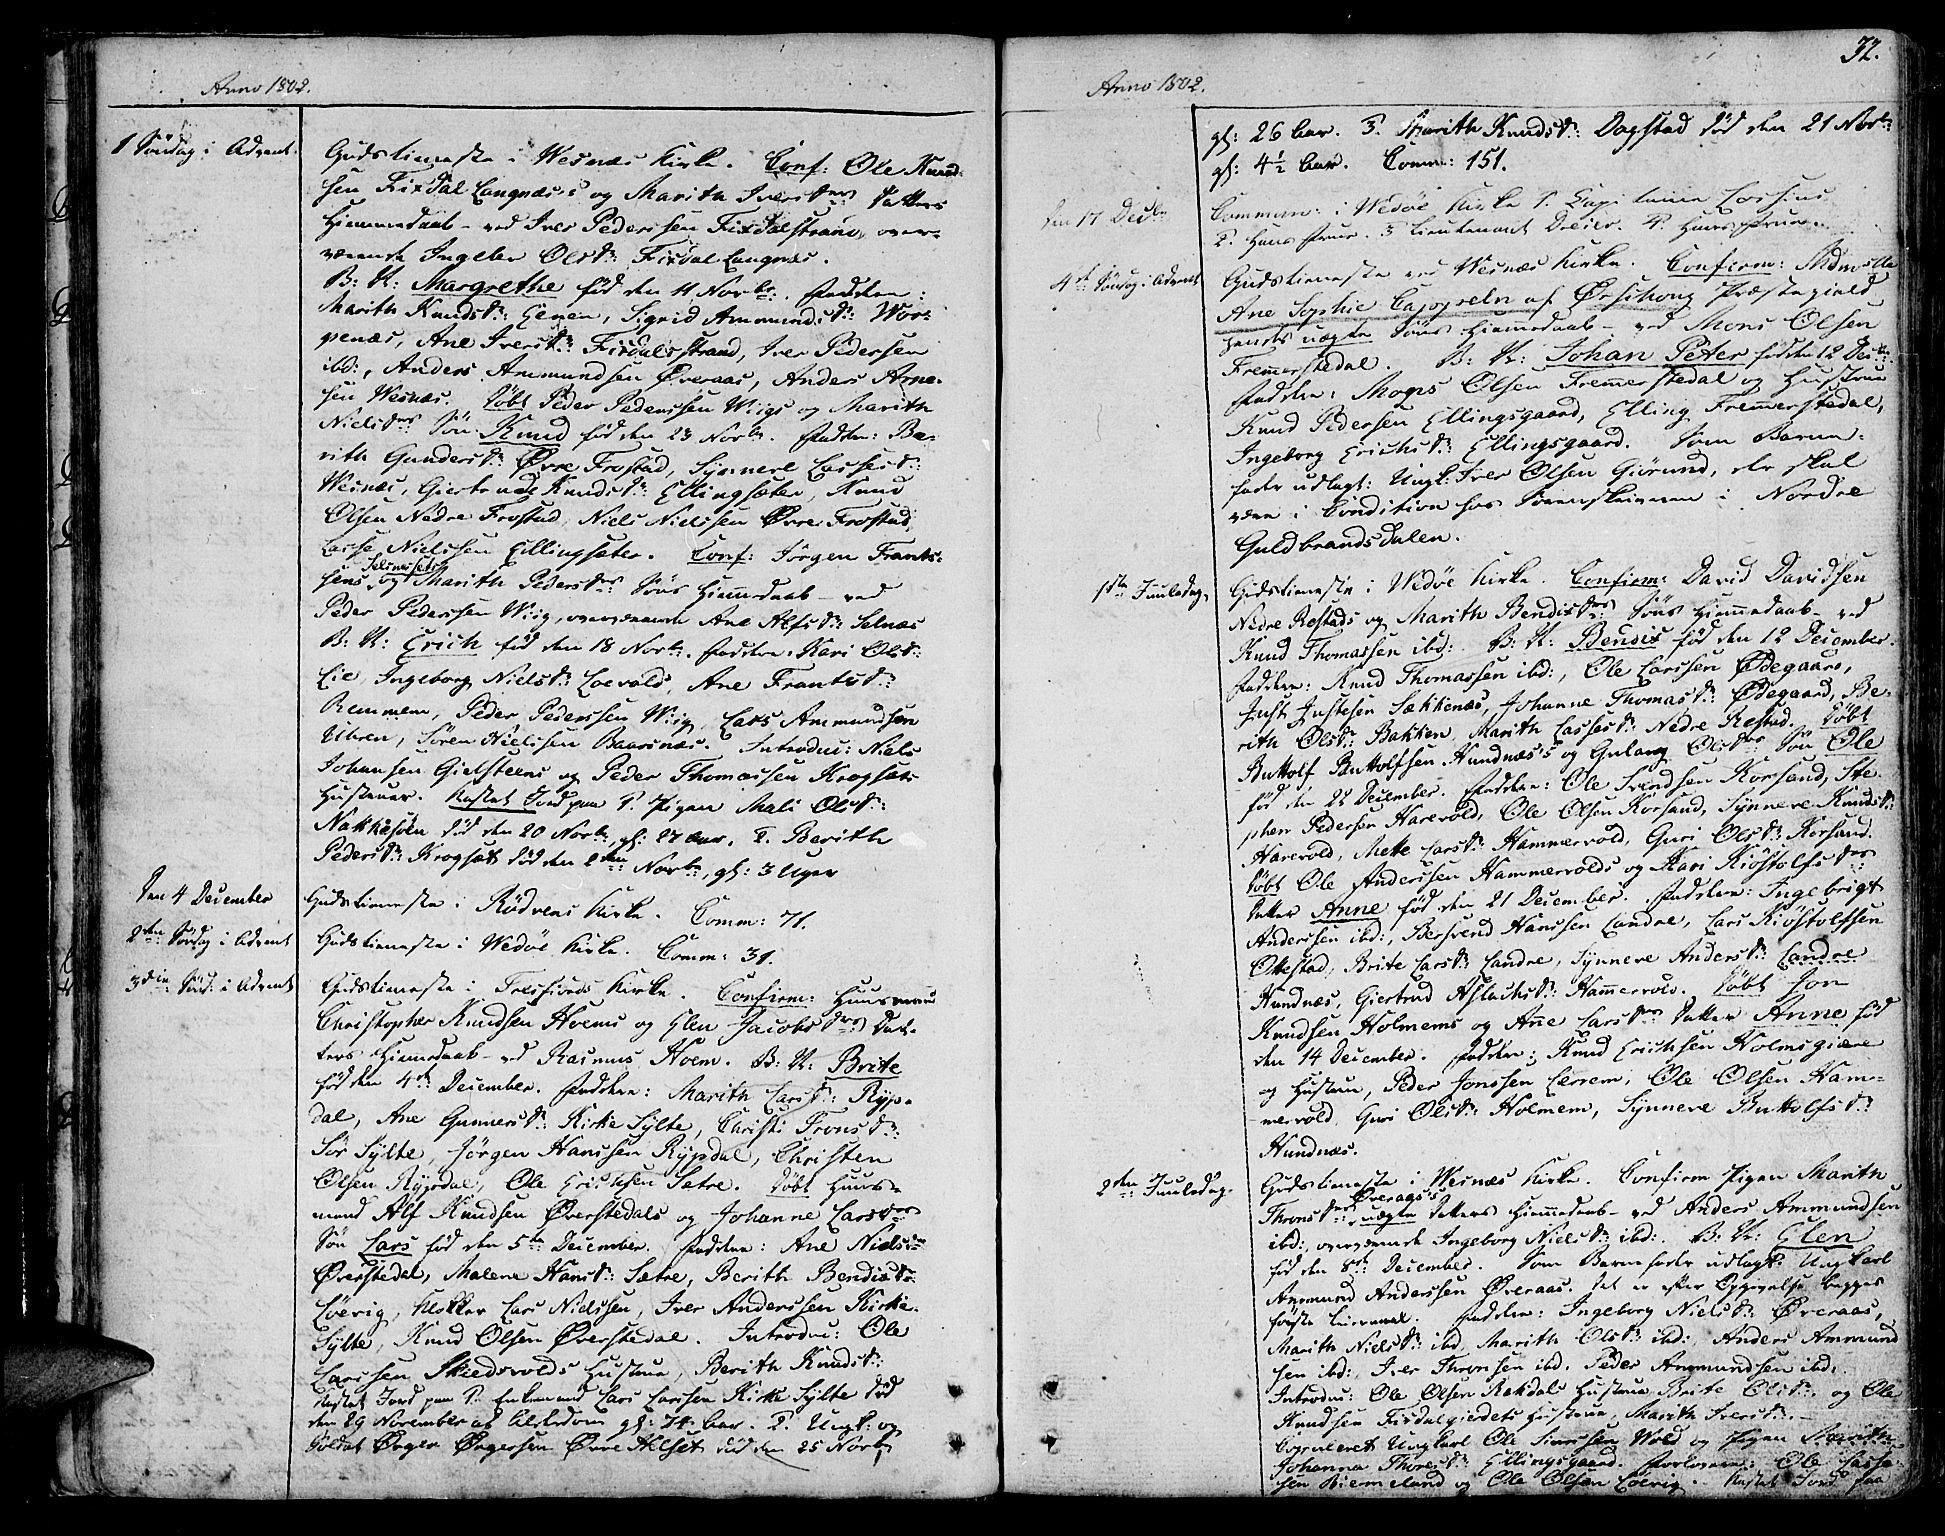 Anno 1802.
1 Søndag i Advent.
Gudstieneste i Wesnæs Kirke. Conf: Ole Knud-
sen Fixdal Langnæs's og Marith Ivers drs Datters
Hiemmedaab - ved Iver Pederssen Fixdalstrand, over-
værende Ingeber Olsdr: Fixdal Langnæs.
B: N: Margrethe fød den 11 Novbr. Faddere:
Marith Knudsdr: Genen, Sigrid Ammundsdr: Wor-
penæs, Ane Iversdr: Fixdalsstrand, Iver Pederssen
ibd:, Anders Ammundsen Øveraas, Anders Arne-
sen Wesnæs. Døbt Peder Pederssen Wiigs og Marith
Nielsdrs Søn: Knud fød den 23 Novbr. Faddere: Be-
rith Gundersdr: Øvre Frostad, Synnere Lassesdr:
Wesnæs, Giertrude Knudsdr: Ellingsæter, Knud
Olsen Nedre Frostad, Niels Nielssen Øvre Frostad,
Lasse Nielssen Ellingsæter. Conf: Jørgen Frants-
sens Selsnæssets og Marith Pedersdrs Søns Hiemmedaab - ved
Peder Pederssen Wiig, overværende Ane Alfsdr: Selnæs
B: N: Erich fød den 18 Novbr. Faddere: Kari Olsdr:
Lie, Ingeborg Nielsdr: Loevold, Ane Frantsdr:
Remmem, Peder Pederssen Wiig, Lars Ammundsen
Uhren, Sören Nielssen Baarsnæs. Introduc: Niels
Johansen Gielsteens og Peder Thomassen Krogsæts
Hustruer. Kastet Jord paa 1. Pigen Mali Olsdr:
Nakkesölen død den 20 Novbr, gl: 27 Aar. 2. Berith
Pedersdr: Krogsæt død den 2den Novbr, gl: 3 Uger
Den 4 December
Gudstieneste i Rødvens Kirke. Comm: 71.
2den Søndag i Advent
Gudstieneste i Wedöe Kirke. Comm: 31.
3die Sönd: i Advent
Gudstieneste i Tresfiords Kirke. Confirm: Huusmand
Christopher Knudsen Hoems og Elen Jacobsdrs Dat-
ters Hiemmedaab - ved Rasmus Hoem. B: N: Brite
fød den 4de December. Faddere: Marith Larsdr: Ryp-
dal, Ane Gunnersdr: Kirke Sylte, Christi Tronsdr:
Sør Sylte, Jörgen Hanssen Rypdal, Christen
Olsen Rypdal, Ole Erichsen Sætre. Døbt Huus-
mand Alf Knudsen Øverstedals og Johanne Larsdrs
Søn Lars fød den 5te December. Faddere: Ane Nielsdr
Øverstedal, Malene Hansdr: Sætre, Berith Bendixdr:
Löevig, Klokker Lars Nielssen, Iver Anderssen Kirke-
Sylte, Knud Olsen Øverstedal. Introduc: Ole
Larssen Skiedsvolds Hustrue, Berith Knudsdr:
Kastet Jord paa 1. Enkemand Lars Larssen Kirke Sylte død
den 29 November af Alderdom gl: 74 Aar. 2. Ungk: og
Soldat Ørger Ørgersen Øvre Helset død den 25 Novbr
32.
Anno 1802.
gl: 26 Aar. 3. Marith Knudsdr: Dagstad død den 21 Novbr:
gl: 4½ Aar. Comm: 151.
Den 17 Decbr
Commun: i Wedöe Kirke 1. Capitaine Lossius
2. Hans Frue. 3 Lieutenant Dreier. 4. Hans Frue.
4de Søndag i Advent
Gudstieneste ved Wesnæs Kirke. Confirm: Mdmoiselle
Ane Sophie Cappeln af Ørschoug Præstegield
hendes uægte Søns Hiemmedaab - ved Mons Olsen
Fremerstedal. B: N: Johan Peter fød den 12 Decbr.
Faddere: Mogns Olsen Fremerstedal og Hustrue
Knud Pedersen Ellingsgaard, Elling Fremerstedal,
Ingeborg Erichsdr: Ellingsgaard. Som Barne-
fader udlagt: Ungk: Iver Olsen Giörund, der skal
være i Condition hos Sorenskriveren i Nordre
Guldbrandsdalen.
1ste Juuledag.
Gudstieneste i Wedöe Kirke. Confirm: David Davidsen
Nedre Røstads og Marith Bendixdrs Søns Hiemmedaab - ved
Knud Thomassen ibd: B: N: Bendix fød den 12 December.
Faddere: Knud Thomassen ibd:, Ole Larssen Ødegaard,
Just Justesen Sækkenæs, Johanne Thomasdr: Ødegaard, Be-
rith Olsdr: Bakken, Marith Lassesdr: Nedre Røstad. Døbt
Buttolf Buttolfsen Hundnæs's og Gulaug Olsdrs Søn Ole
fød den 22 December. Faddere: Ole Svendsen Korsand, Ste-
phen Pedersen Harevold, Ole Olsen Korsand, Synnere Knudsdr:
Harevold, Mette Larsdr: Hammervold, Guri Olsdr: Korsand.
Døbt Ole Anderssen Hammervolds og Kari Kiöstolfsdrs
Datter Anne fød den 21 December. Faddere: Ingebrigt
Anderssen ibd:, Bersvend Hanssen Landre, Lars Kiöstolfsen
Ottestad, Brite Larsdr: Landre, Synnere Andersdr: Landre
Hundnæs, Giertrud Aslachsdr: Hammervold. Døbt Jon
Knudsen Holmems og Anne Larsdrs Datter Anne fød
den 14 December. Faddere: Knud Erichsen Holmsgiære
og Hustrue, Peder Jonssen Lerrem, Ole Olsen Ham-
mervold, Guri Olsdr: Holmem, Synnere Buttolfsdr:
Hundnæs.
2den Juuledag.
Gudstieneste i Wesnæs Kirke. Confirm Pigen Marith
Thronsdrs Øveraas's uægte Datters Hiemmedaab - ved Anders Ammundsen
ibd:, overværende Ingeborg Nielsdr: ibd: B: N: Elen
fød den 8de December. Som Barnefader udlagt Ungkarl
Ammund Anderssen Øveraas. Det er efter Opgivelse begges
første Leiermaal. Faddere: Ingeborg Nielsdr: Øveraas,
Marith Nielsdr: ibd, Marith Olsdr: ibd:, Anders Ammund
sen ibd:, Iver Thronsen ibd. Peder Ammundsen ibd.
Introduc: Ole Olsen Rakdals Hustrue Brite Olsdr: og Ole
Knudsen Fixdalgierdets Hustrue, Marith Iversdr:
Copuleret Ungkarl Ole Siverssen Wold og Pigen Marith
Johanna Thoresdr: Ellingsgaard. Forlovere: Ole Lasse-
sen Biermeland og Ole Olsen Löevig. Kastet Jord paa